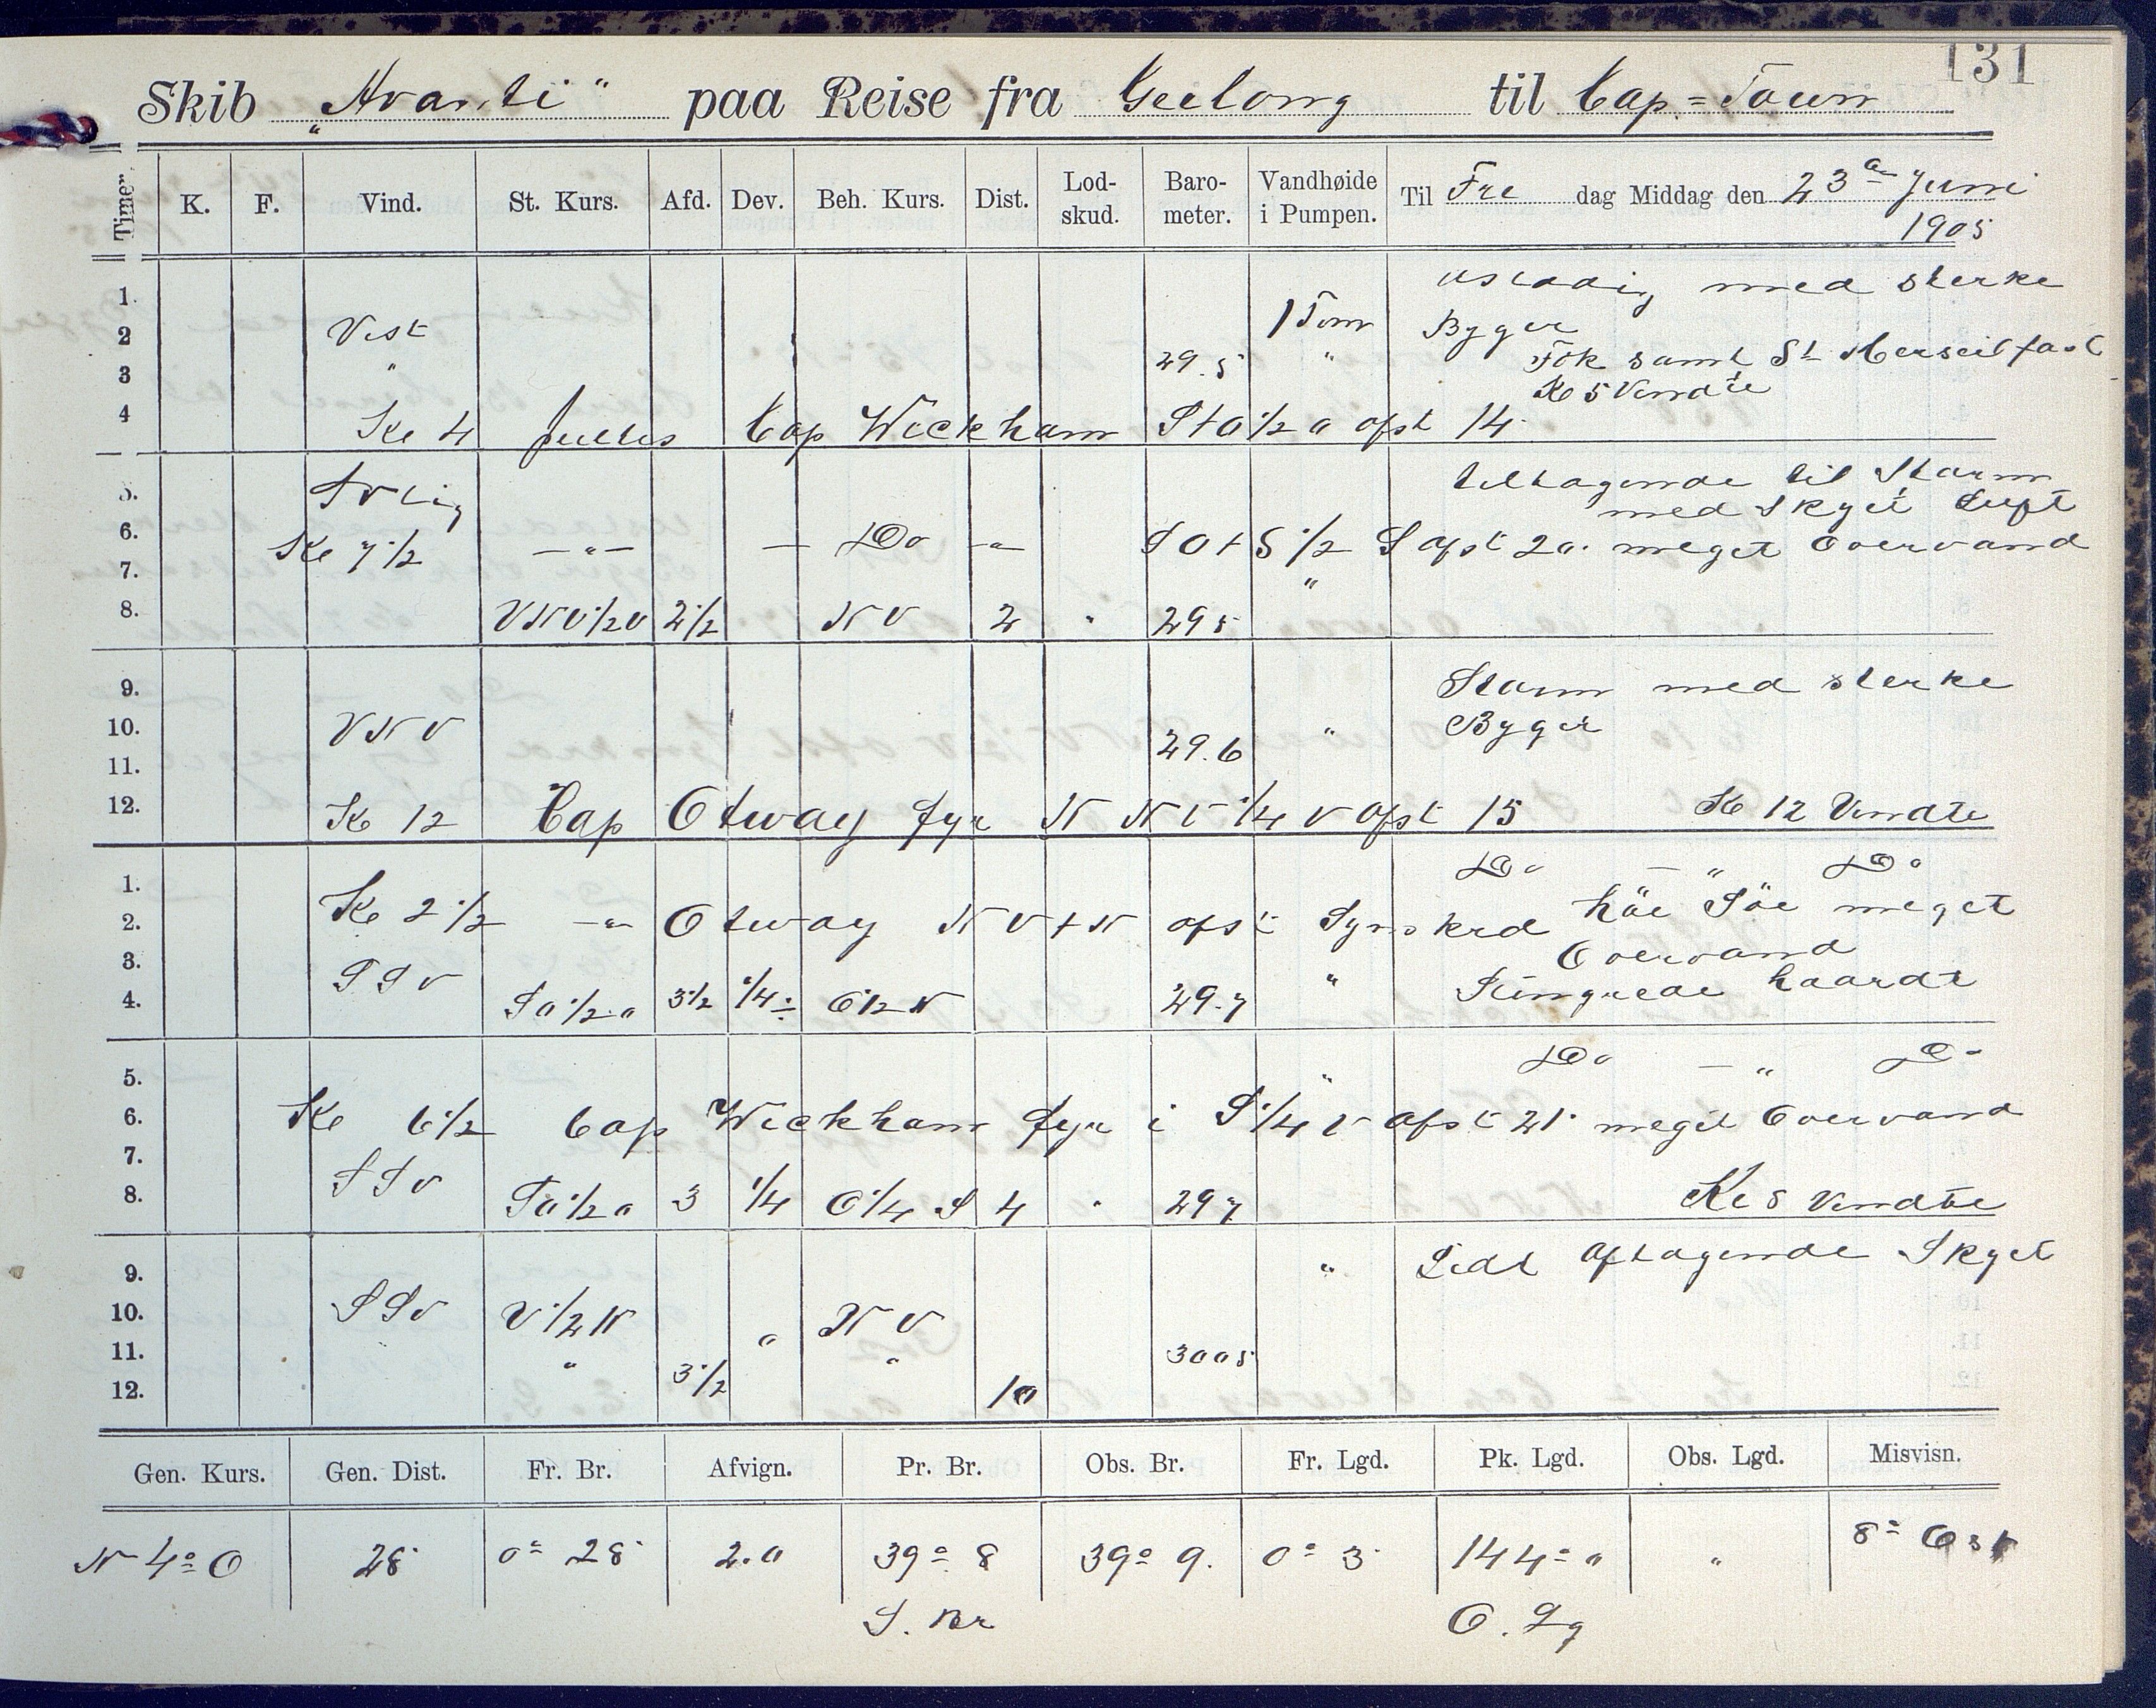 131
Skib „Avanti" paa Reise fra Geelong til Cap=Town
Timer. K. F. Vind. St. Kurs. Afd. Dev. Beh. Kurs. Dist. Lod-skud. Baro-meter. Vandhøide i Pumpen. Til Fre dag Middag den 23 Juni
1905
1. ustadig med sterke
2 Vest 1 Tom Byger
3 " 29.5 " Fok samt St Merseil fast
Kl 5 Vendte
4 Kl 4 Cap Wickham afst 14
5. tiltagende til Storm
med Skyet Luft
6. Kl 7 1/2 — " — — Do — " — S 1/2 afst 20. meget Overvand
7. "
8. VNV 1/2 V 2 1/2 NV 2 " 29 5
9. Storm med sterke
10. VNV " Byger
11. 29.6
12. Kl 12 Cap Otway fyr NNV 1/4 V afst 15 Kl 12 Vendte
1. Do — " Do
2. Kl 2 1/2 — " — Otway NV t N afst Synskrd höe Söe meget
3. Overvand
4. SSV SO 1/2 O 3 1/2 1/4 O 1/2 N 29.7 " haardt
5. " Do — " Do
6. Kl 6 1/2 Cap Wickham fyr i S 1/4 V afst 21 meget Overvand
7.
8. SSV SO 1/2 O 3 1/4 O 1/4 S 4 " 29 7 Kl 8 Vendte
9. " Lidt aftagende Skyet
10. SSV V 1/2 N " NV
11. " " 30 05
12. 3 1/2 10
Gen. Kurs. Gen. Dist. Fr. Br. Afvign. Pr. Br. Obs. Br. Fr. Lgd. Pk. Lgd. Obs. Lgd. Misvisn.
N 4° O 28 0° 28 2.0 39° 8 39° 9. 0° 3 144° " " 8° Ost
S. Br O. Lg